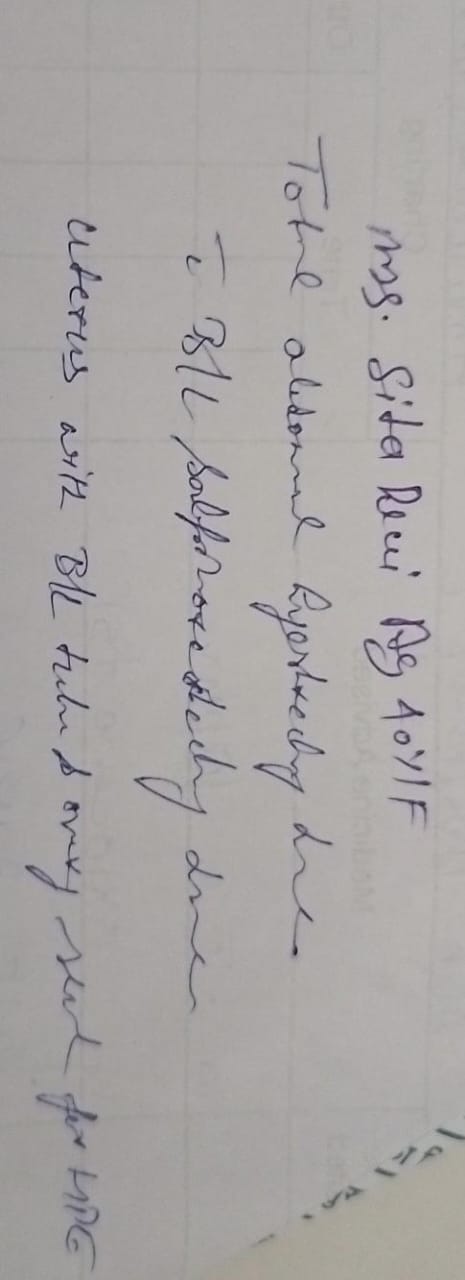 Mrs. Sita Devi Ag 40Y/F
Total abdominal hysterectomy done
c̄ B/L salpingo done
uterus with B/L tube & ovary send for HPE